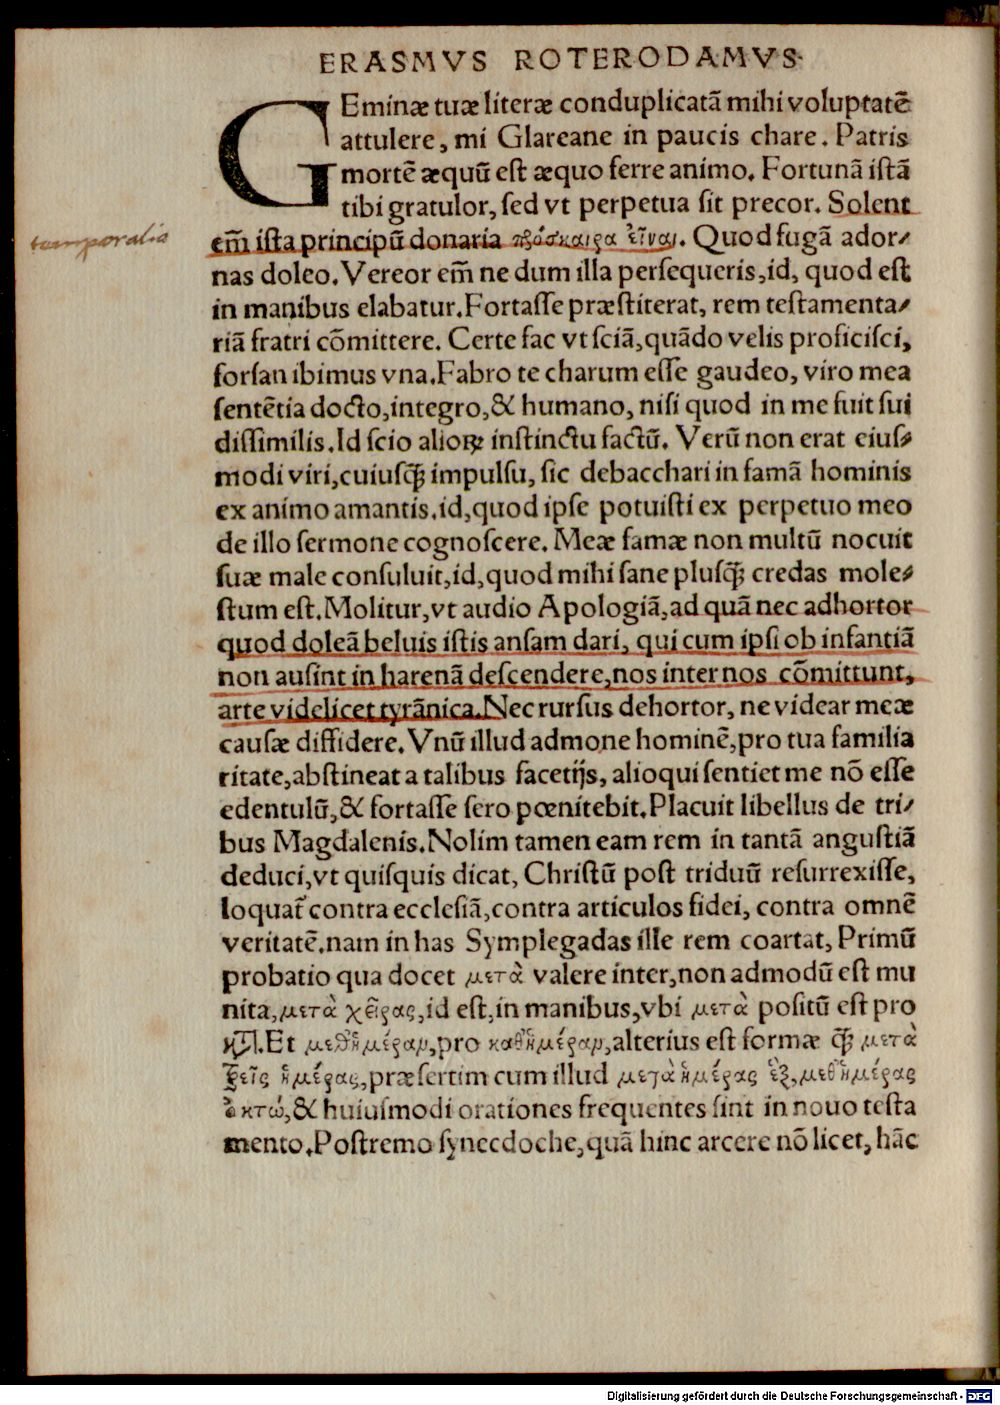 ERASMVS ROTERODAMVS·
GEminæ tuæ literæ conduplicatã mihi voluptatẽ
attulere, mi Glareane in paucis chare. Patris
mortẽ æquũ est æquo ferre animo. Fortunã istã
tibi gratulor, sed vt perpetua sit precor. Solent
temporalia
em̃ ista principũ donaria πρόσκαιρα εἶναι. Quod fugã ador/
nas doleo. Vereor em̃ ne dum illa persequeris, id, quod est
in manibus elabatur. Fortasse præstiterat, rem testamenta/
riã fratri cõmittere. Certe fac vt sciã, quãdo velis proficisci,
forsan ibimus vna. Fabro te charum esse gaudeo, viro mea
sentẽtia docto, integro, & humano, nisi quod in me fuit sui
dissimilis. Id scio alioꝝ instinctu factũ. Verũ non erat eius/
modi viri, cuiusq̃ꝫ impulsu, sic debacchari in famã hominis
ex animo amantis. id, quod ipse potuisti ex perpetuo meo
de illo sermone cognoscere. Meæ famæ non multũ nocuit
suæ male consuluit, id, quod mihi sane plusq̃ꝫ credas mole/
stum est. Molitur, vt audio Apologiã, ad quã nec adhortor
quod doleã beluis istis ansam dari, qui cum ipsi ob infantiã
non ausint in harenã descendere, nos inter nos cõmittunt,
arte videlicet tyrãnica. Nec rursus dehortor, ne videar meæ
causæ diffidere. Vnũ illud admone hominẽ, pro tua familia
ritate, abstineat a talibus facetijs, alioqui sentiet me nõ esse
edentulũ, & fortasse sero pœnitebit. Placuit libellus de tri/
bus Magdalenis. Nolim tamen eam rem in tantã angustiã
deduci, vt quisquis dicat, Christũ post triduũ resurrexisse,
loquat᷑ contra ecclesiã, contra articulos fidei, contra omnẽ
veritatẽ. nam in has Symplegadas ille rem coartat, Primũ
probatio qua docet μετὰ valere inter, non admodũ est mu
nita, μετὰ χεῖρας, id est, in manibus, vbi μετὰ positũ est pro
κατὰ. Et μεθ᾽ ἡμέραν, pro καθ᾽ ἡμέραν, alterius est formæ q̃ꝫ μετὰ
τρεῖς ἡμέρας, præsertim cum illud μετὰ ἡμέρας ἓξ, μεθ᾽ ἡμέρας
ὀκτώ, & huiusmodi orationes frequentes sint in nouo testa
mento. Postremo synecdoche, quã hinc arcere nõ licet, hãc
Digitalisierung gefördert durch die Deutsche Forschungsgemeinschaft - DFG